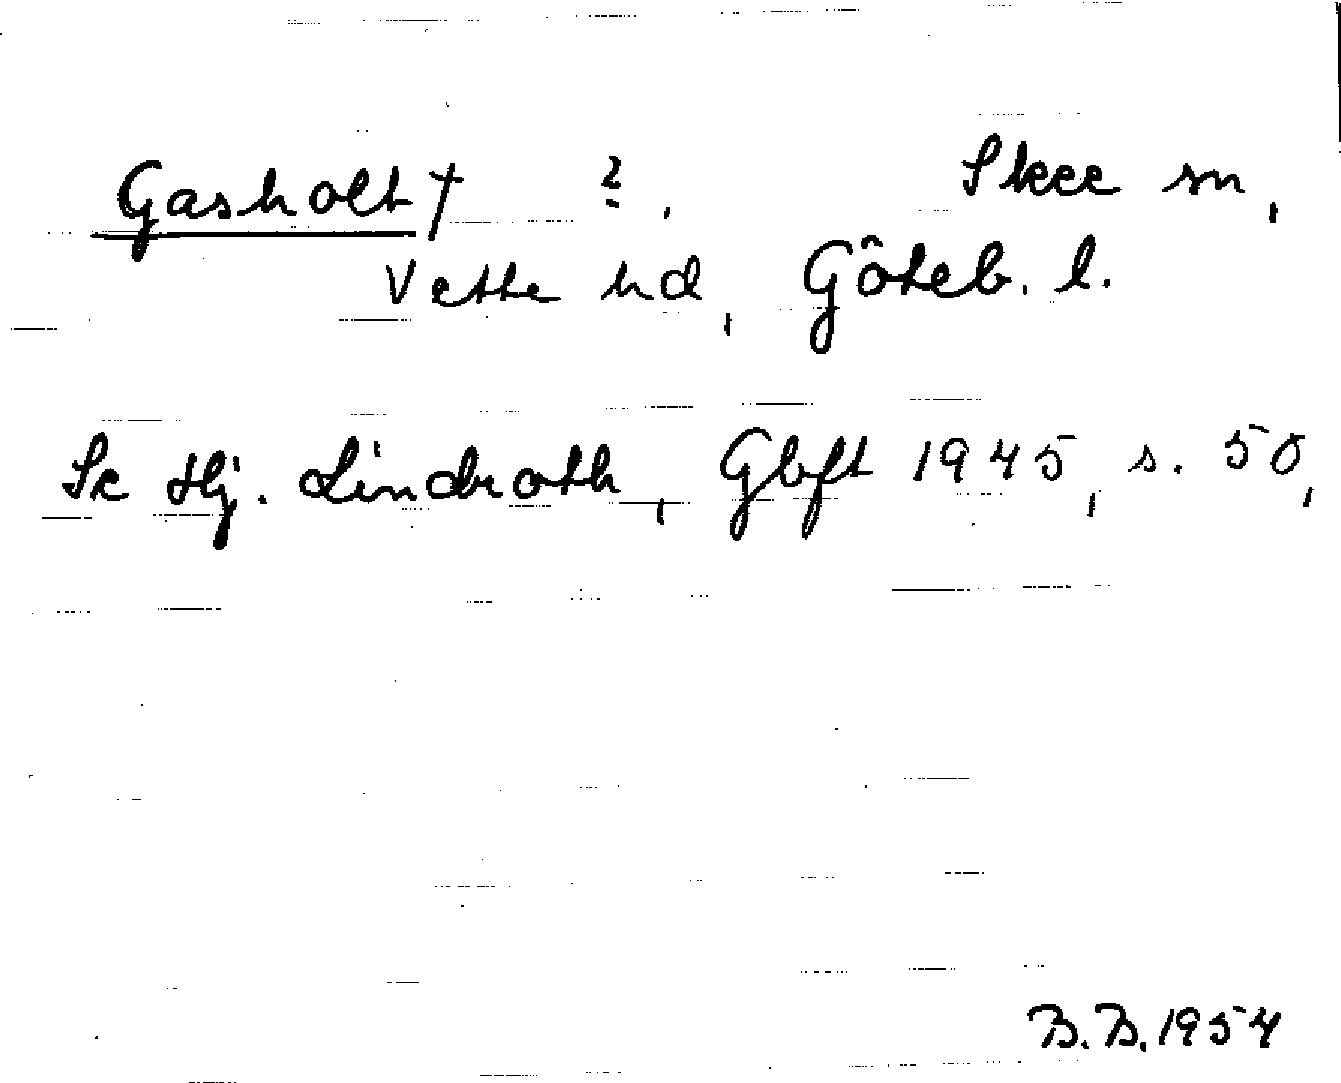 Gasholt† ?, Skee sn,
Vette hd, Göteb. l.
Se Hj. Lindroth, Gbft 1945, s. 50,
B.B. 1954